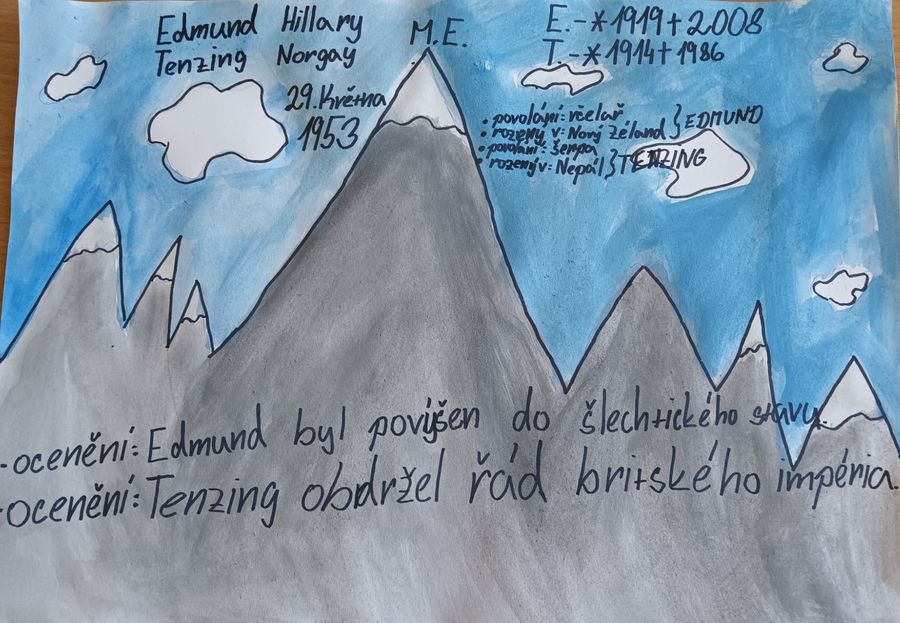 Edmund Hillary
Tenzing Norgay
29. Května
1953
M.E.
E.-*1919+2008
T.-*1914+1986
• povolání: včelař
• rozený v: Nový Zéland } EDMUND
• povolání: šerpa
• rozený v: Nepál } TENZING
-ocenění: Edmund byl povýšen do šlechtického stavu.
-ocenění: Tenzing obdržel řád britského impéria.